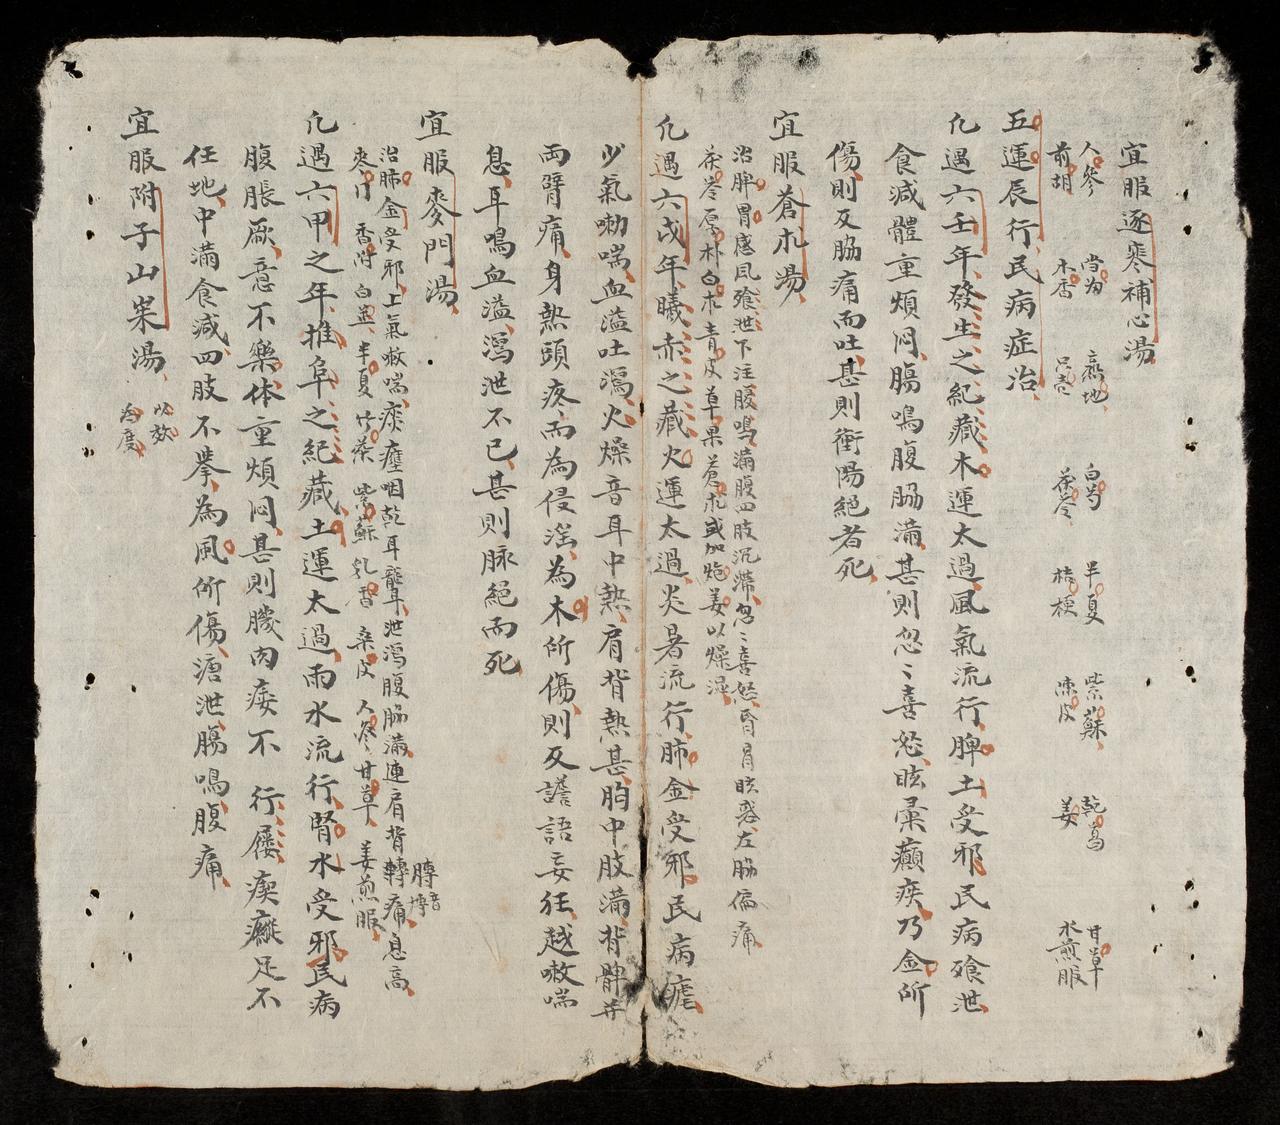 宜服逐寒補心湯
人參 當歸 熟地 白芍 半夏 紫蘇 乾葛 甘草
前胡 木香 只壳 茯苓 桔梗 陳皮 姜 水煎服
五運辰行民病症治
凢遇六壬年發生之紀藏木運太過風氣流行脾土受邪民病飱泄
食減體重煩悶腸鳴腹脇滿甚則忽〻喜怒眩暈癲疾乃金所
傷則反脇痛而吐甚則衝陽絕者死
宜服蒼朮湯
治脾胃感風飱泄下注腹鳴滿腹四肢沉滯忽〻喜怒昏冒眩惑左脇偏痛
茯苓厚朴白朮青皮草果蒼朮或加炮姜以燥濕
凢遇六戊年曦赤之藏火運太過炎暑流行肺金受邪民病瘧
少氣嗽喘血溢吐瀉火燥音耳中熱肩背熱甚胸中肢滿背髀並
両臂痛身熱頭疼而為侵淫為木所傷則反譫語妄狂越嗽喘
息耳鳴血溢瀉泄不已甚則脉絕而死
宜服麥門湯
治肺金受邪上氣嗽喘痰壅咽乾耳聾泄瀉腹脇滿連肩背轉痛息高 膞音博
麥门 香附 白芷 半夏 竹茶 紫蘇 乳香 桑皮 人參 甘草 姜煎服
凢遇六甲之年推阜之紀藏土運太過雨水流行腎水受邪民病
腹脹厥意不樂体重煩悶甚則臗肉痿不行屨瘈瘲足不
任地中滿食減四肢不挙為風所傷溏泄腸鳴腹痛
宜服附子山茱湯 以效為度